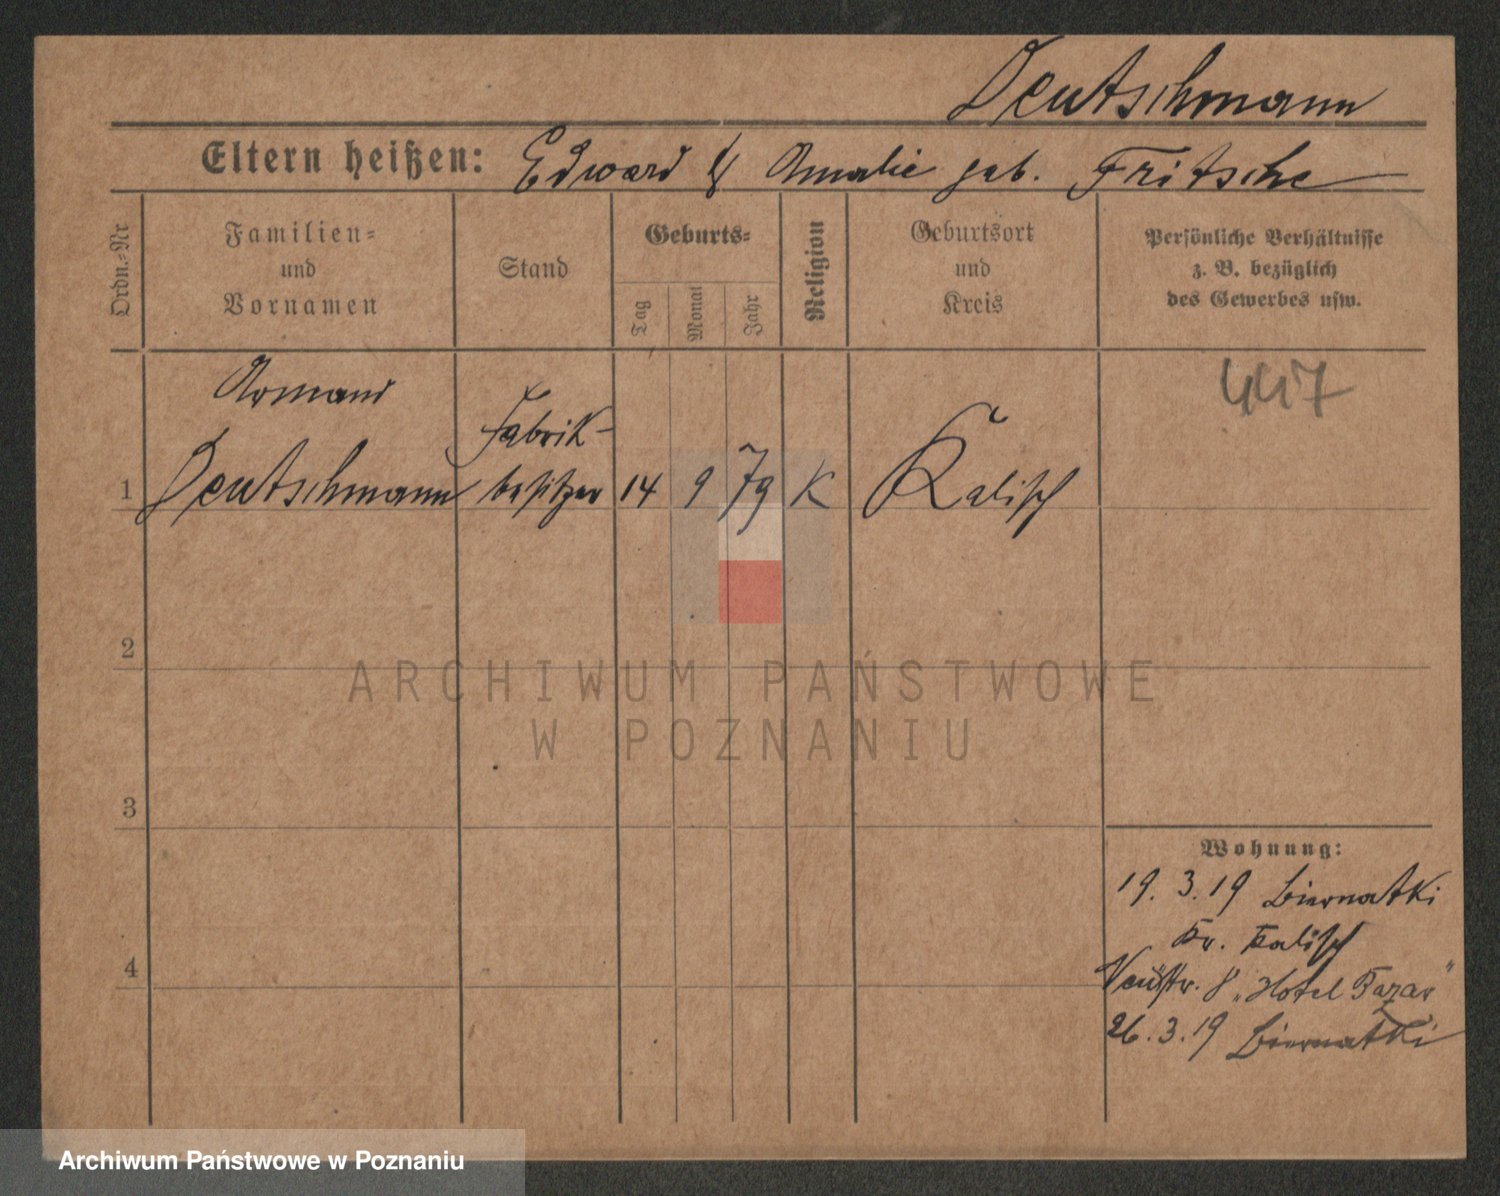 Deutschmann
Eltern heißen: Edward & Amalie geb. Fritsche
Ordn.-Nr
Familien-
und
Vornamen
Stand
Geburts-
Tag
Monat
Jahr
Religion
Geburtsort
und
Kreis
Persönliche Verhältnisse
z. B. bezüglich
des Gewerbes usw.
447
Armand
Fabrik-
1 Deutschmann besitzer 14 9 79 K Kalisch
2
ARCHIWUM PAŃSTWOWE
W POZNANIU
3
Wohnung:
19. 3. 19 Biernatki
Kr. Kalisch
4
Neustr. 8 „Hotel Bazar"
26. 3. 19 Biernatki
Archiwum Państwowe w Poznaniu